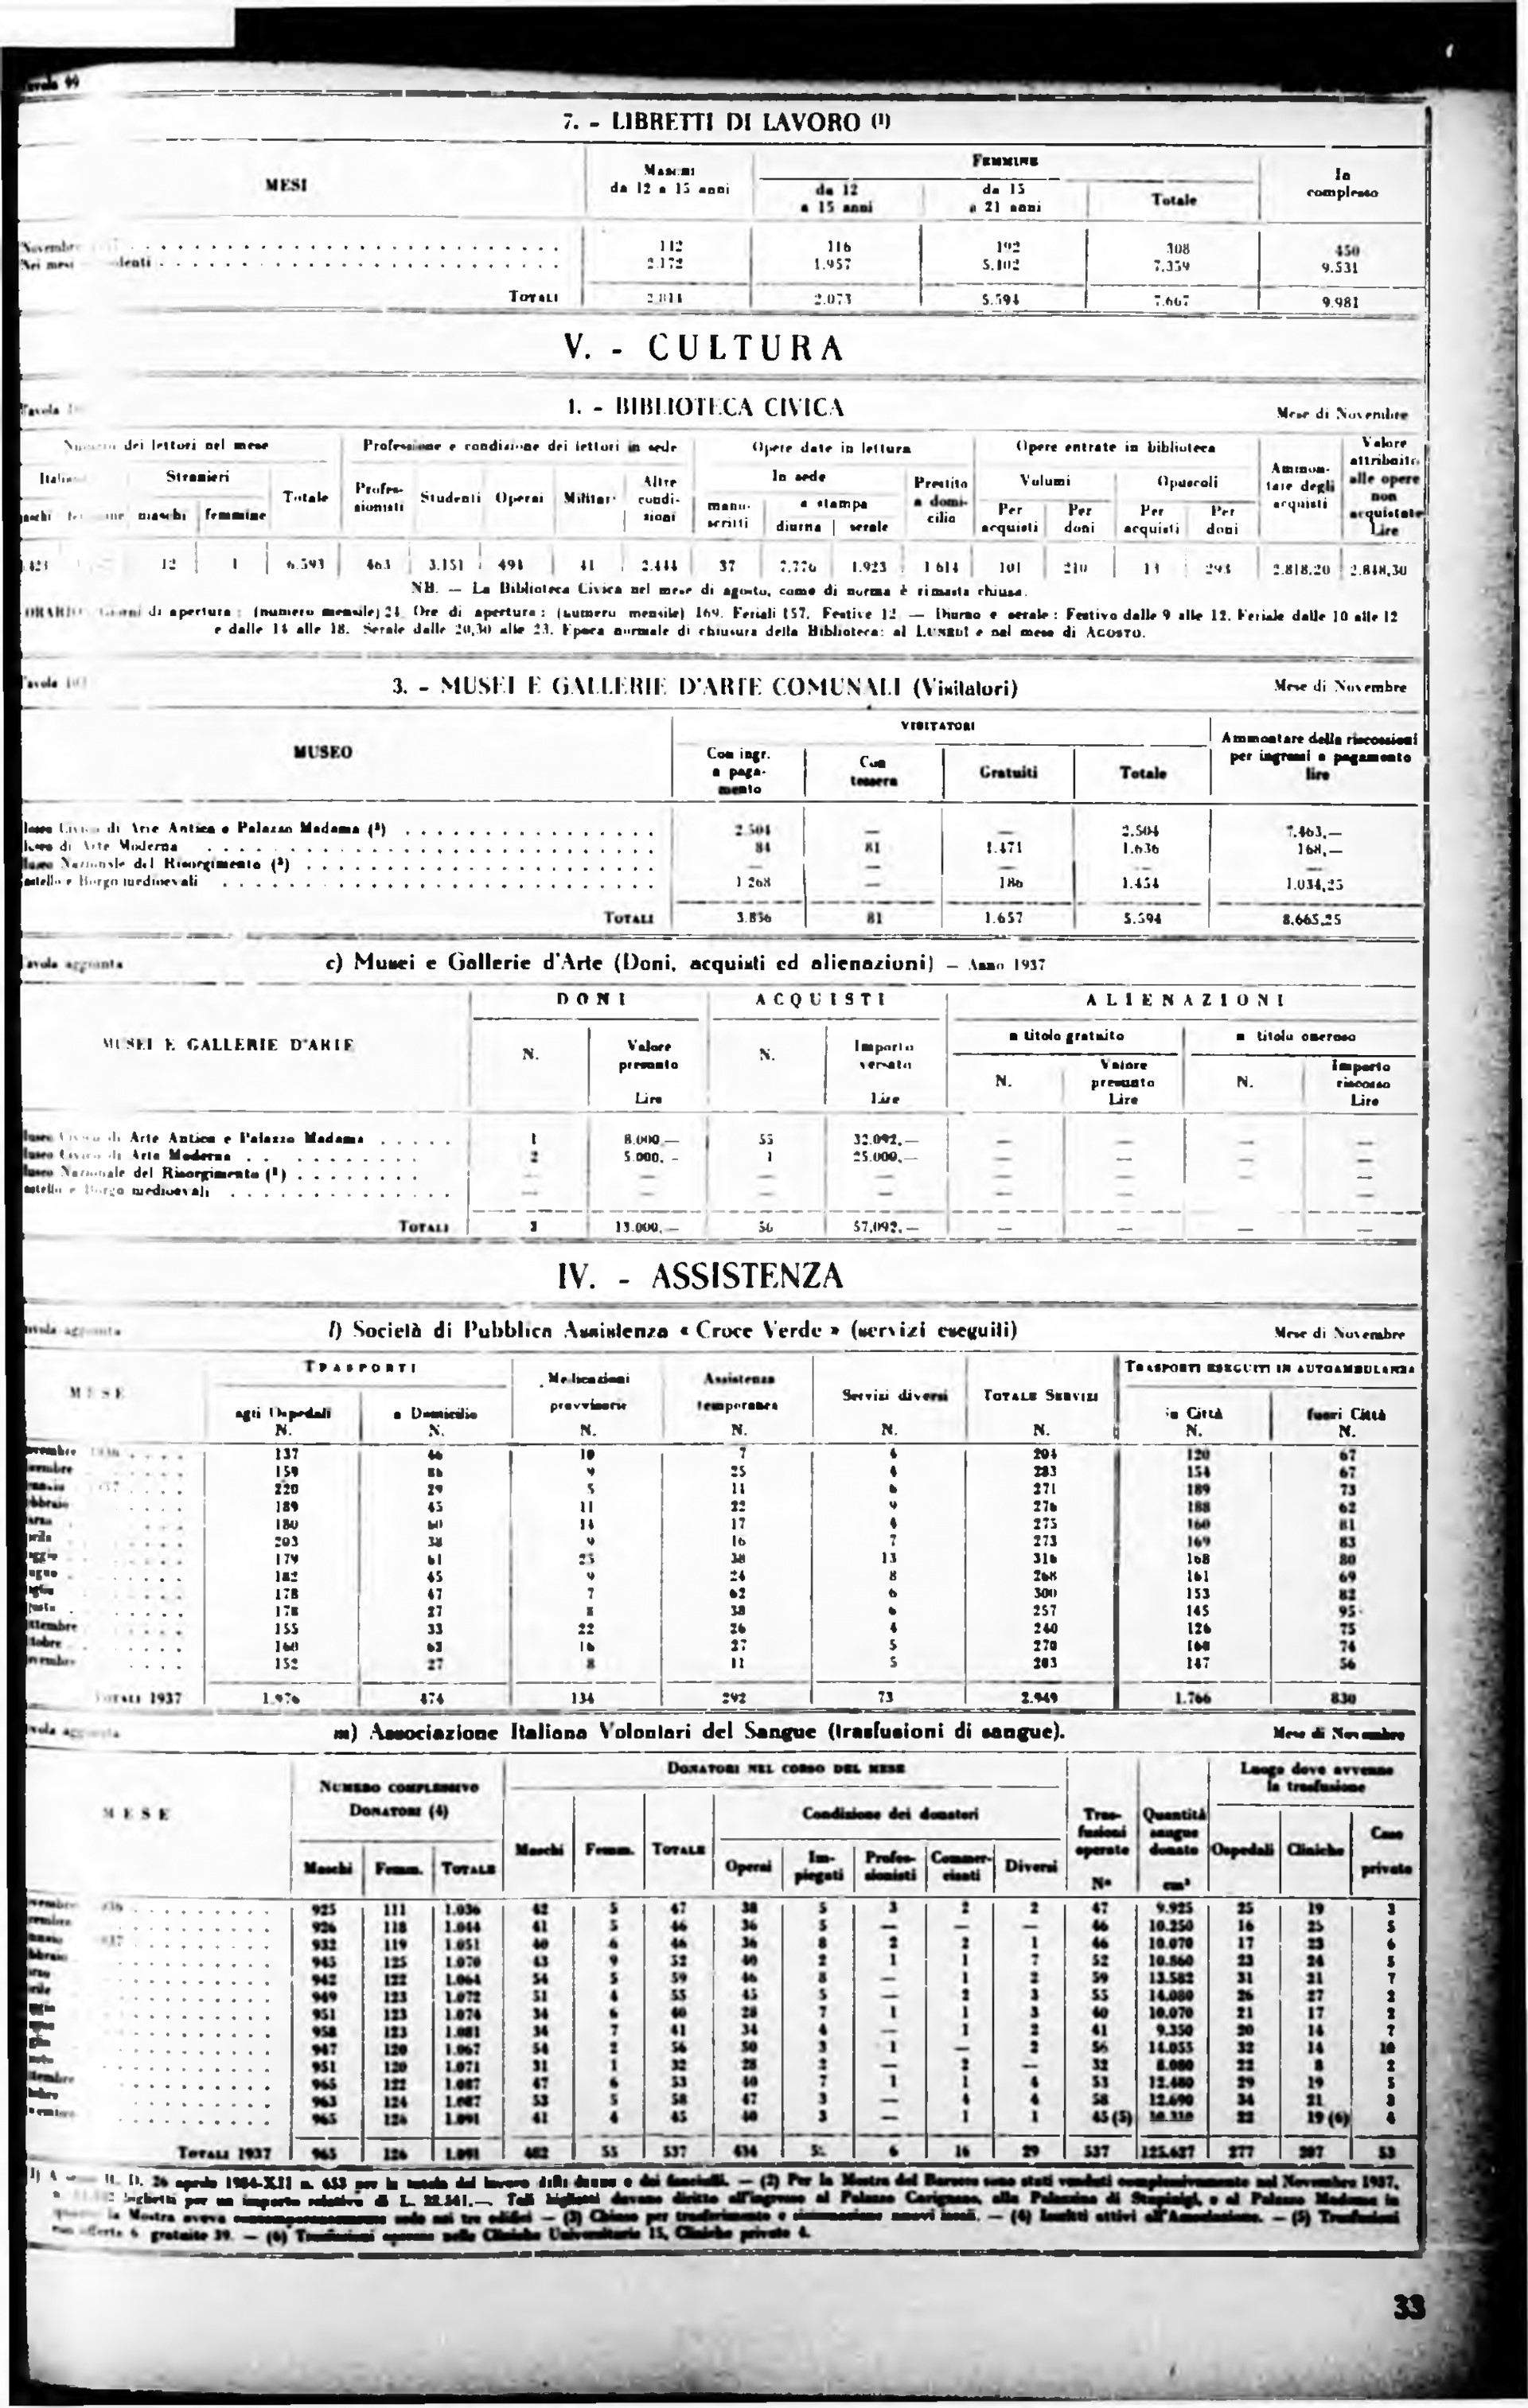 7. - LIBRETTI DI LAVORO (1)
MESI
MASCHI da 12 a 15 anni
FEMMINE
da 12 a 15 anni
da 15 a 21 anni
Totale
In complesso
Novembre 116 192 308 450
Nei mesi 2.172 1.957 5.402 7.359 9.531
TOTALI 2.073 5.594 7.667 9.981
V. - CULTURA
Tavola
1. - BIBLIOTECA CIVICA
Mese di Novembre
Numero dei lettori nel mese
Professione e condizione dei lettori in sede
Opere date in lettura
Opere entrate in biblioteca
Ammontare degli acquisti
Valore attribuito alle opere non acquistate Lire
Stranieri
maschi femmine
Totale
Professionisti Studenti Operai Militari Altre condizioni
In sede
manuscritti
a stampa
diurna serale
Prestito a domicilio
Volumi
Per acquisti Per doni
Opuscoli
Per acquisti Per doni
12 1 6.593 463 3.151 494 41 2.444 37 7.776 1.923 1 614 101 210 293 2.818,20 2.848,30
NB. — La Biblioteca Civica nel mese di agosto, come di norma è rimasta chiusa.
ORARIO: Giorni di apertura: (numero mensile) 24. Ore di apertura: (numero mensile) 169. Feriali 157. Festive 12 — Diurno e serale: Festivo dalle 9 alle 12. Feriale dalle 10 alle 12
e dalle 14 alle 18. Serale dalle 20,30 alle 23. Epoca normale di chiusura della Biblioteca: al LUNEDÌ e nel mese di AGOSTO.
Tavola
3. - MUSEI E GALLERIE D'ARTE COMUNALI (Visitatori)
Mese di Novembre
MUSEO
VISITATORI
Con ingr. a pagamento
Con tessera
Gratuiti
Totale
Ammontare della riscossioni per ingressi a pagamento lire
Civico di Arte Antica e Palazzo Madama (²) 2.504 — — 2.504 7.463,—
di Arte Moderna 84 81 1.471 1.636 168,—
Nazionale del Risorgimento (³) — — — — —
e Borgo medioevali 1 268 — 186 1.454 1.034,25
TOTALI 3.856 81 1.657 5.594 8.665,25
aggiunta
c) Musei e Gallerie d'Arte (Doni, acquisti ed alienazioni) — Anno 1937
MUSEI E GALLERIE D'ARTE
DONI
ACQUISTI
ALIENAZIONI
N.
Valore presunto Lire
N.
Importo versato Lire
a titolo gratuito
N.
Valore presunto Lire
a titolo oneroso
N.
Importo riscosso Lire
Civico di Arte Antica e Palazzo Madama 1 8.000,— 55 32.092,— — — — —
Civico di Arte Moderna 2 5.000,- 1 25.000,— — — — —
Nazionale del Risorgimento (³) — — — — — — — —
e Borgo medioevali — — — — — — — —
TOTALI 3 13.000,— 56 57.092,— — — — —
IV. - ASSISTENZA
l) Società di Pubblica Assistenza « Croce Verde » (servizi eseguiti)
Mese di Novembre
MESE
TRASPORTI
agli Ospedali N.
a Domicilio N.
Medicazioni provvisorie N.
Assistenza temporanea N.
Servizi diversi N.
TOTALE SERVIZI N.
TRASPORTI ESEGUITI IN AUTOAMBULANZA
in Città N.
fuori Città N.
1936 137 46 10 7 4 204 120 67
159 86 9 25 4 283 154 67
1937 220 29 5 11 6 271 189 73
189 45 11 22 9 276 188 62
180 60 14 17 4 275 160 81
203 38 9 16 7 273 169 83
179 61 25 38 13 316 168 80
182 45 9 24 8 268 161 69
178 47 7 62 6 300 153 82
178 27 8 38 6 257 145 95
155 33 22 26 4 240 126 75
160 62 16 27 5 270 160 74
152 27 8 11 5 203 147 56
TOTALI 1937 1.976 474 134 292 73 2.949 1.766 830
m) Associazione Italiana Volontari del Sangue (trasfusioni di sangue).
Mese di Novembre
MESE
NUMERO COMPLESSIVO DONATORI (4)
Maschi Femm. TOTALE
DONATORI NEL CORSO DEL MESE
Maschi Femm. TOTALE
Condizione dei donatori
Operai Impiegati Professionisti Commercianti Diversi
Trasfusioni operate N°
Quantità sangue donato cm³
Luogo dove avvenne la trasfusione
Ospedali Cliniche Case private
925 111 1.036 42 5 47 38 5 3 2 2 47 9.925 25 19 3
926 118 1.044 41 5 46 36 5 — — — 46 10.250 16 25 5
932 119 1.051 40 6 46 36 8 2 2 1 46 10.070 17 23 6
945 125 1.070 43 9 52 40 2 1 1 7 52 10.860 23 24 5
942 122 1.064 54 5 59 46 8 — 1 2 59 13.582 31 21 7
949 123 1.072 51 4 55 45 5 — 2 3 55 14.080 26 27 2
951 123 1.074 34 6 40 28 7 1 1 3 40 10.070 21 17 2
958 123 1.081 34 7 41 34 4 — 1 2 41 9.350 20 14 7
947 120 1.067 54 2 56 50 3 1 — 2 56 14.055 32 14 10
951 120 1.071 31 1 32 28 2 — 2 — 32 8.080 22 8 2
965 122 1.087 47 6 53 40 7 1 1 4 53 12.480 29 19 5
963 124 1.087 53 5 58 47 3 — 4 4 58 12.690 34 21 3
965 126 1.091 41 4 45 40 3 — 1 1 45 (5) 22 19 (6) 4
TOTALI 1937 965 126 1.091 482 55 537 434 6 16 29 537 125.627 277 207 53
R. D. 26 aprile 1934-XII n. 653 per la tutela del lavoro delle donne e dei fanciulli. — (2) Per la Mostra del Barocco sono stati venduti complessivamente nel Novembre 1937,
biglietti per un importo relativo di L. 22.541.—. Tali biglietti davano diritto all'ingresso al Palazzo Carignano, alla Palazzina di Stupinigi, e al Palazzo Madama in
la Mostra aveva contemporaneamente sede nei tre edifici — (3) Chiuso per trasferimento e sistemazione nuovi locali. — (4) Iscritti attivi all'Associazione. — (5) Trasfusioni
6 gratuite 39. — (6) Trasfusioni operate nelle Cliniche Universitarie 15, Cliniche private 4.
33